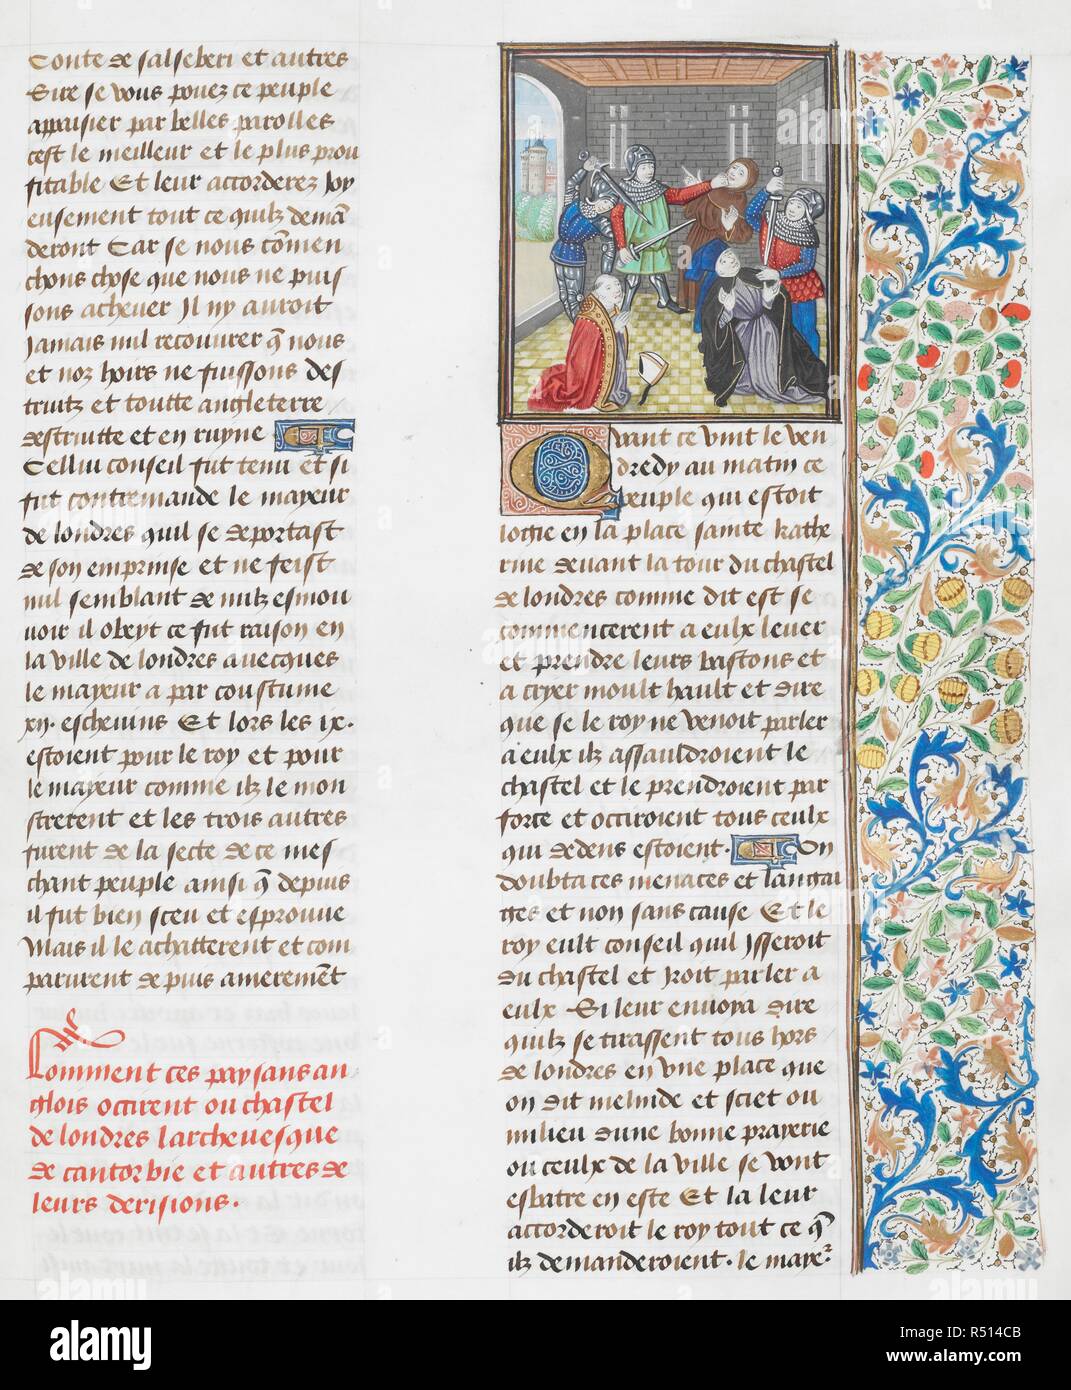 Conte de salseberi et autres
Sire se vous pouez ce peuple
appaisier par belles parolles
cest le meilleur et le plus prou
fitable Et leur accorderez Joy
eusement tout ce quilz demā
deront Car se nous cōmen
chons chose que nous ne puis
sons achever Il ny auroit
Jamais nul recouvrer q̄ nous
et noz hoirs ne fuissons des
truitz et toutte angleterre
destruitte et en ruyne
Cellui conseil fut tenu et si
fut contremande le mayeur
de londres quil se deportast
de son emprinse et ne feist
nul semblant de nulz esmou
voir il obeyt ce fut raison en
la ville de londres avecques
le mayeur a par coustume
xii. eschevins Et lors les ix.
estoient pour le roy et pour
le mayeur comme ilz le mon
strerent et les trois autres
furent de la secte de ce mes
chant peuple ainsi q̄ depuis
il fut bien sceu et esprouve
Mais il le achatterent et com
parurent depuis amerem̄et
Comment ces paysans an
glois occirent ou chastel
de londres larchevesque
de cantorbie et autres de
leurs derisions.
Quant ce vint le ven
dredy au matin ce
peuple qui estoit
logie en la place sainte kathe
rine devant la tour du chastel
de londres comme dit est se
commencerent a eulx lever
et prendre leurs bastons et
a cryer moult hault et dire
que se le roy ne venoit parler
a eulx ilz assauldroient le
chastel et le prendroient par
force et occiroient tous ceulx
qui dedens estoient. On
doubta ces menaces et langai
ges et non sans cause Et le
roy eult conseil quil Isseroit
du chastel et Iroit parler a
eulx. Si leur envoya dire
quilz se tirassent tous hors
de londres en une place que
on dit melinde et sciet ou
milieu dune bonne prayerie
ou ceulx de la ville se vont
esbatre en este Et la leur
accorderoit le roy tout ce q̄
ilz demanderoient. le maye²
alamy
Image ID: R514CB
www.alamy.com